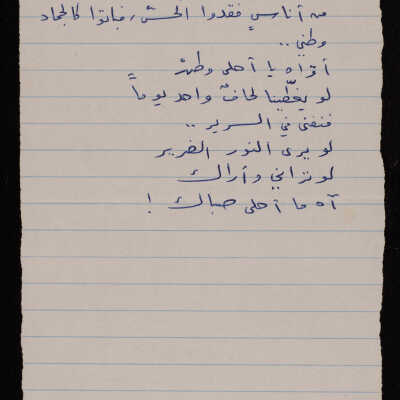 من أناسٍ فقدوا الحسّ، فباتوا كالجماد
وطني ..
أتراه يا أحلى وطنْ
لو يغطّينا لحافٌ واحد يوماً
فنغفى في السرير ..
لو يرى النور الضرير
لو تراني وأراك
آه ما أحلى صباك !